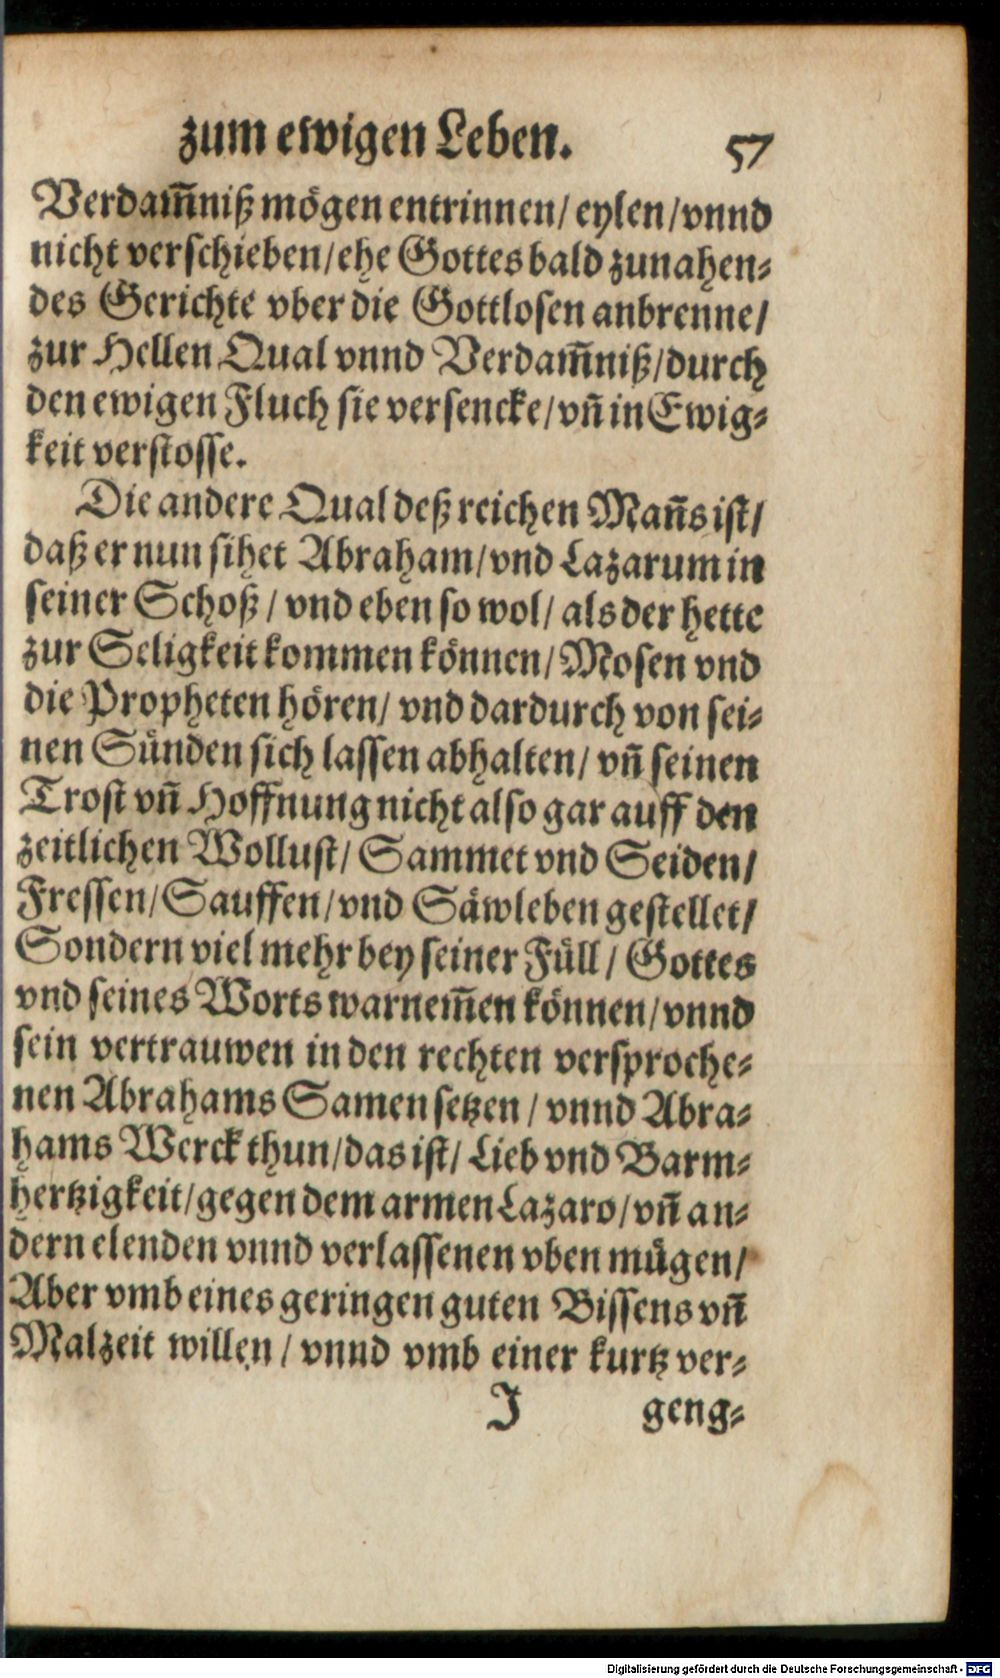 zum ewigen Leben. 57
Verdam̃niß mögen entrinnen/ eylen/ vnnd
nicht verschieben/ ehe Gottes bald zunahen-
des Gerichte vber die Gottlosen anbrenne/
zur Hellen Qual vnnd Verdam̃niß/ durch
den ewigen Fluch sie versencke/ vñ in Ewig-
keit verstosse.
Die andere Qual deß reichen Mañs ist/
daß er nun sihet Abraham/ vnd Lazarum in
seiner Schoß/ vnd eben so wol/ als der hette
zur Seligkeit kommen können/ Mosen vnd
die Propheten hören/ vnd dardurch von sei-
nen Sünden sich lassen abhalten/ vñ seinen
Trost vñ Hoffnung nicht also gar auff den
zeitlichen Wollust/ Sammet vnd Seiden/
Fressen/ Sauffen/ vnd Säwleben gestellet/
Sondern viel mehr bey seiner Füll/ Gottes
vnd seines Worts warnem̃en können/ vnnd
sein vertrauwen in den rechten versproche-
nen Abrahams Samen setzen/ vnnd Abra-
hams Werck thun/ das ist/ Lieb vnd Barm-
hertzigkeit/ gegen dem armen Lazaro/ vñ an-
dern elenden vnnd verlassenen vben mügen/
Aber vmb eines geringen guten Bissens vñ
Malzeit willen/ vnnd vmb einer kurtz ver-
J geng-
Digitalisierung gefördert durch die Deutsche Forschungsgemeinschaft - DFG